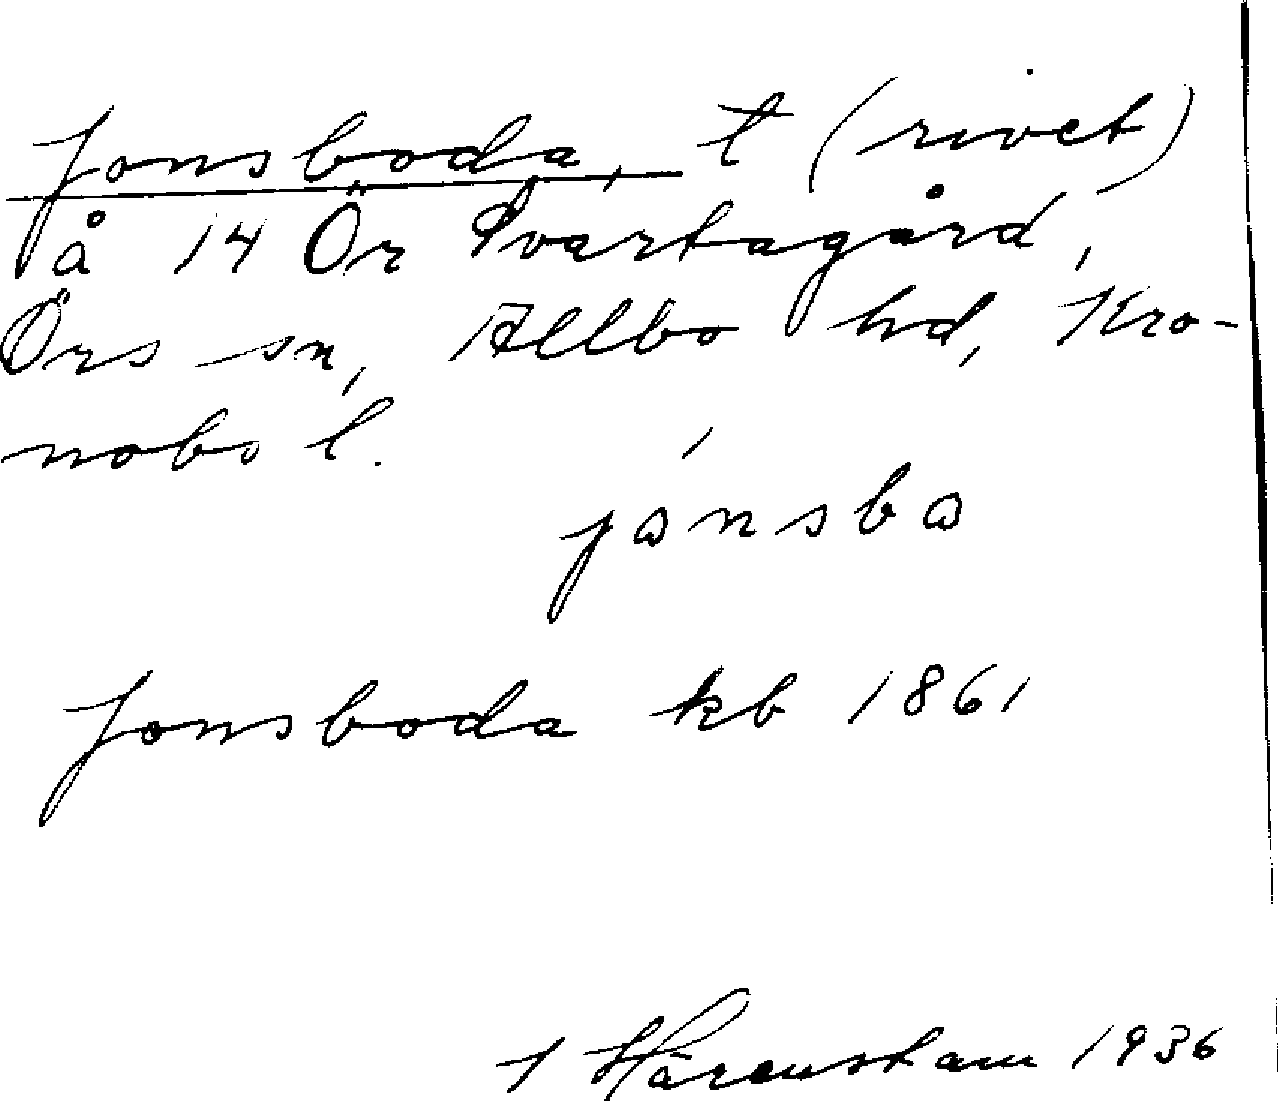 Jonsboda, t (rivet)
å 14 Ör Svartagård,
Örs sn, Allbo hd, Kro-
nobs l.
jónsbo
Jonsboda kb 1861
Härenstam 1936